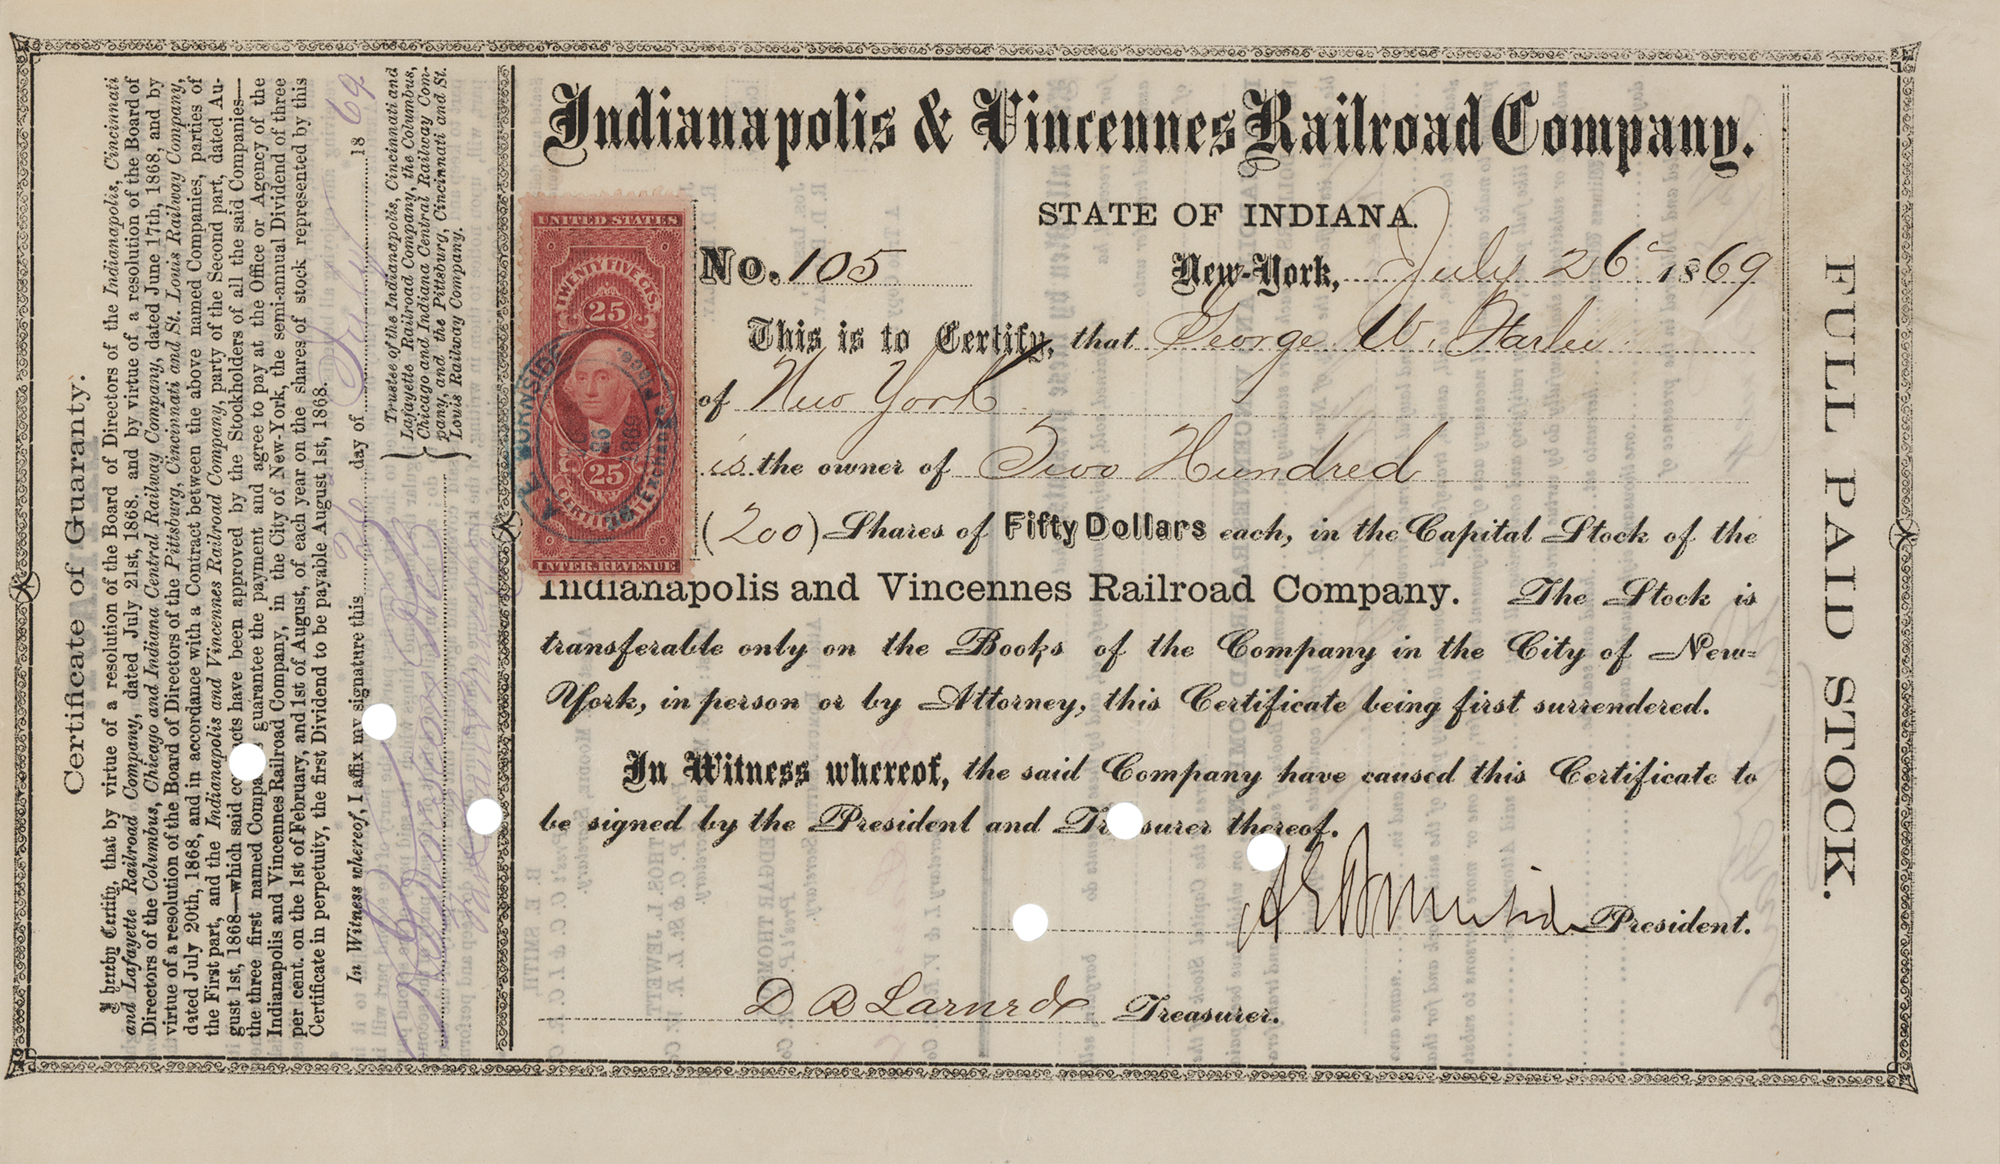 Certificate of Guaranty.
I hereby Certify, that by virtue of a resolution of the Board of Directors of the Indianapolis, Cincinnati
and Lafayette Railroad Company, dated July 21st, 1868, and by virtue of a resolution of the Board of
Directors of the Columbus, Chicago and Indiana Central Railway Company, dated June 17th, 1868, and by
virtue of a resolution of the Board of Directors of the Pittsburg, Cincinnati and St. Louis Railway Company,
dated July 20th, 1868, and in accordance with a Contract between the above named Companies, parties of
the First part, and the Indianapolis and Vincennes Railroad Company, party of the Second part, dated Au-
gust 1st, 1868—which said co cts have been approved by the Stockholders of all the said Companies—
the three first named Compa s guarantee the payment and agree to pay at the Office or Agency of the
Indianapolis and Vincennes Railroad Company, in the City of New-York, the semi-annual Dividend of three
per cent. on the 1st of February, and 1st of August, of each year on the shares of stock represented by this
Certificate in perpetuity, the first Dividend to be payable August 1st, 1868.
In Witness whereof, I affix my signature this 26 day of July 1869
Trustee of the Indianapolis, Cincinnati and
Lafayette Railroad Company, the Columbus,
Chicago and Indiana Central Railway Com-
pany, and the Pittsburg, Cincinnati and St.
Louis Railway Company.
Indianapolis & Vincennes Railroad Company.
STATE OF INDIANA.
UNITED STATES
TWENTY FIVE CTS.
25
25
CERTIFICATE
INTER. REVENUE
No. 105
New-York, July 26 1869
This is to Certify, that George W.
of New York
is the owner of Two Hundred
(200) Shares of Fifty Dollars each, in the Capital Stock of the
Indianapolis and Vincennes Railroad Company. The Stock is
transferable only on the Books of the Company in the City of New-
York, in person or by Attorney, this Certificate being first surrendered.
In Witness whereof, the said Company have caused this Certificate to
be signed by the President and Tr surer thereof.
A E Burnside President.
D R Larned Treasurer.
FULL PAID STOCK.